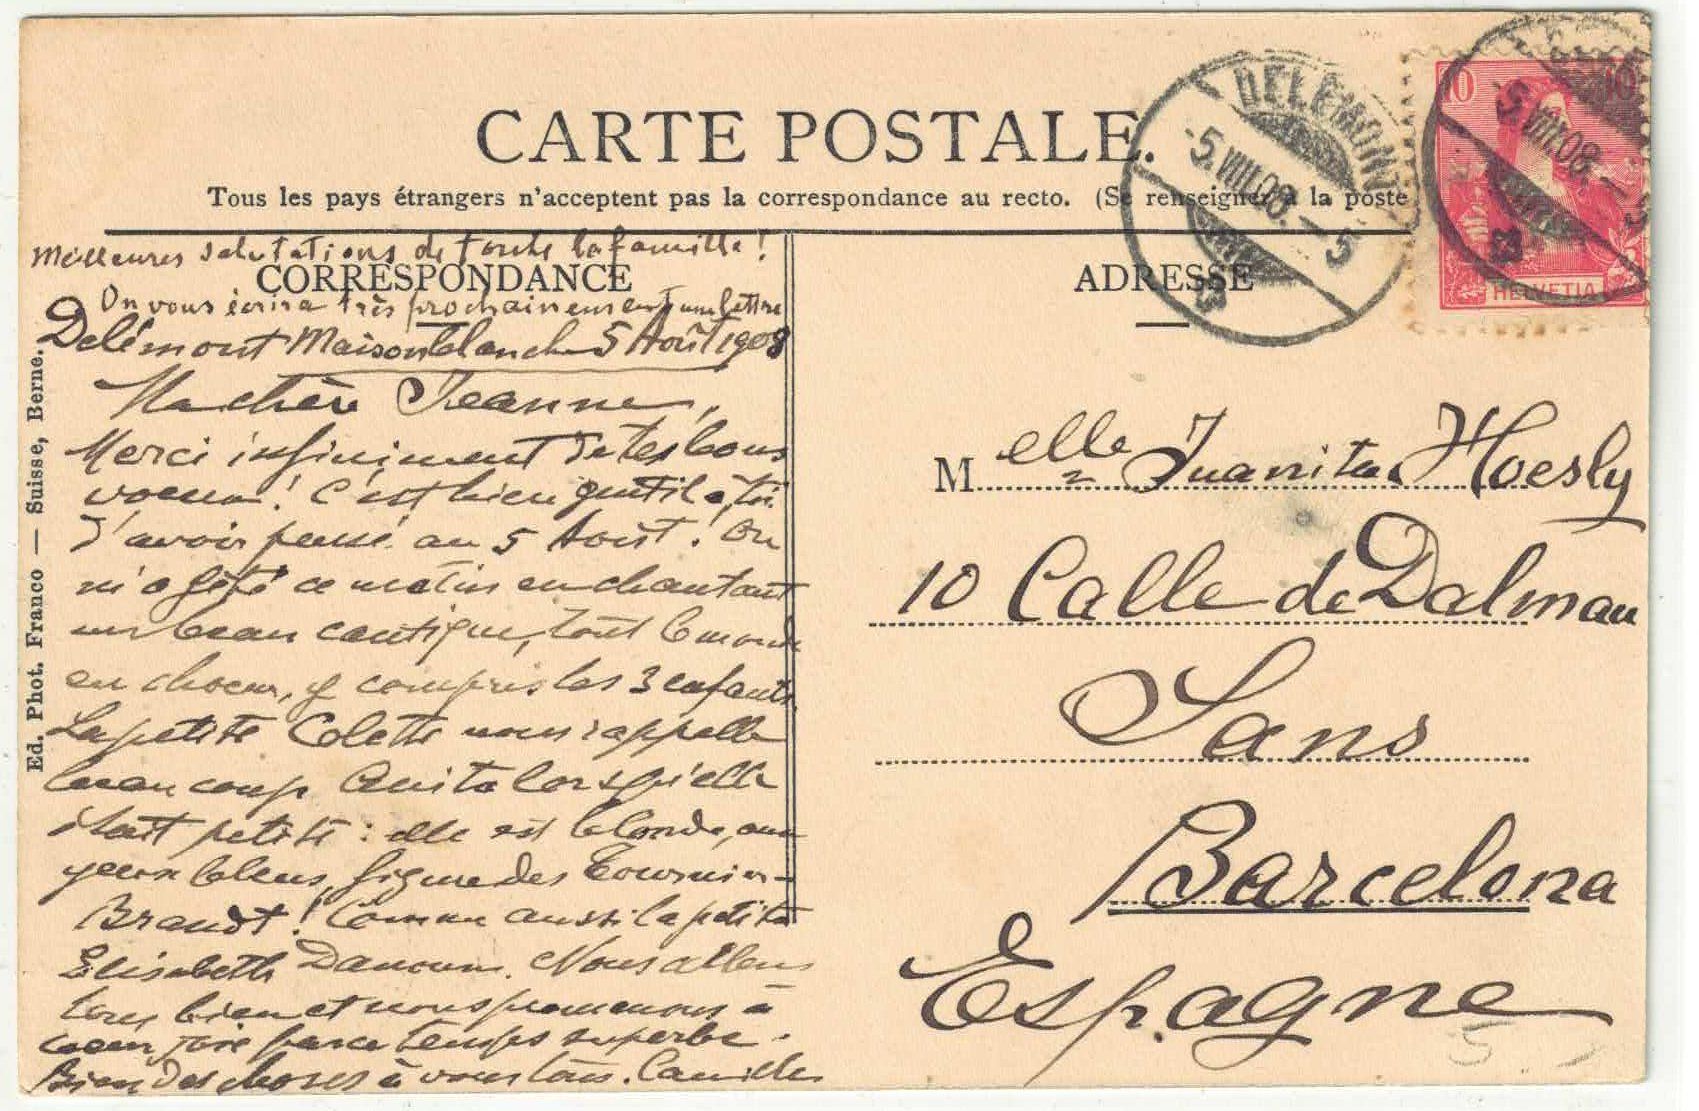 CARTE POSTALE.
Tous les pays étrangers n'acceptent pas la correspondance au recto. (Se renseigner à la poste
Meilleures salutations de toute la famille !
CORRESPONDANCE
On vous écrira très prochainement une lettre
Delémont Maison blanche 5 Août 1908
Ma chère Jeanne,
Merci infiniment de tes bons
voeux ! C'est bien gentil à toi
d'avoir pensé au 5 Août ! On
m'a fêté ce matin en chantant
un beau cantique, tout le monde
en choeur, y compris les 3 enfants.
La petite Colette nous rappelle
beaucoup Anita lorsqu'elle
était petite : elle est blonde, aux
yeux bleus, figure des Tournier-
Brandt ! Comme aussi la petite
Elisabeth . Nous allons
tous bien et nous promenons à
coeur joie par ce temps superbe.
Bien des choses à vous tous. Camille
Ed. Phot. Franco — Suisse, Berne.
ADRESSE
DELÉMONT
5.VIII.08.–5
10
10
HELVETIA
5.VIII.08.–5
Melle Juanita Hoesly
10 Calle de Dalmau
Sans
Barcelona
Espagne
5